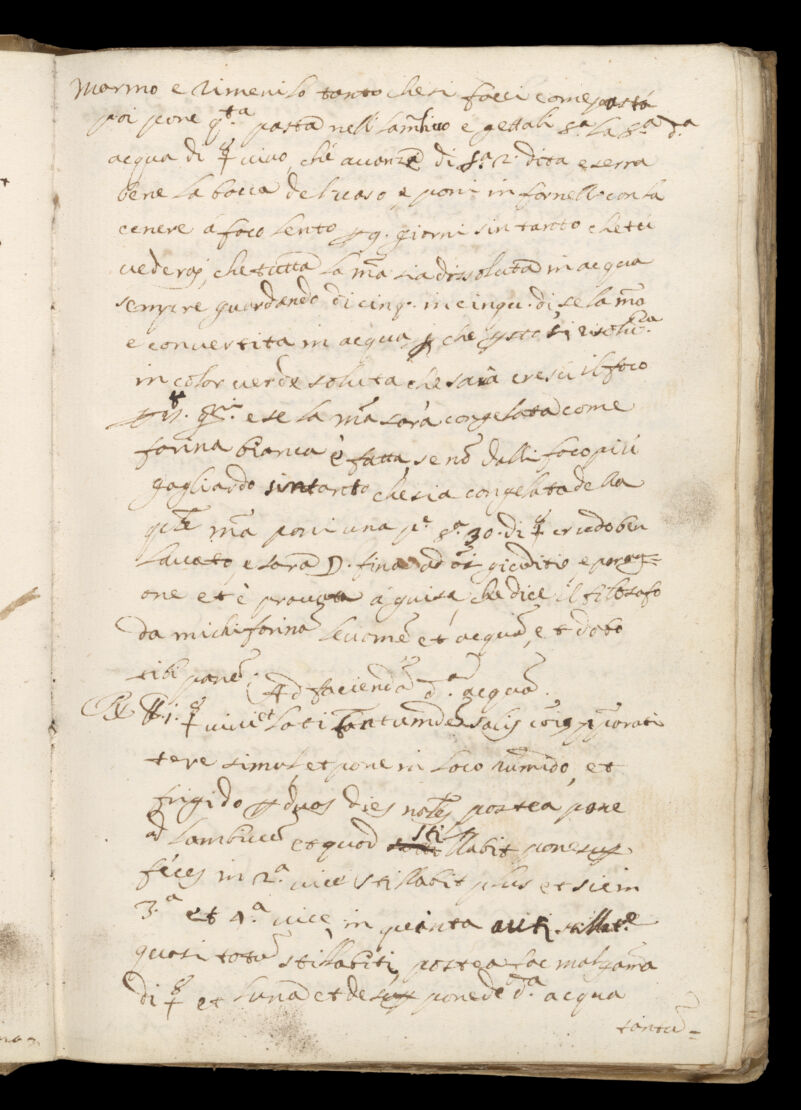 marmo e rimenilo tanto che si facci come pasta
poi pone q.ta pasta nell lambico e gettali s.a la s.a d.a
acqua di ☿ vivo, ché avanza di s.a 2. dita e serra
bene la bocca del vaso e poni in fornello con la
cenere á foco lento p 9. giorni sin tanto che tu
vederai, che tutta la mã sia dissoluta in acqua
sempre guardando di cinq. in cinqu. dì se la mã
e convertita in acqua, che
in color verde soluta che sarà cresci il foco
e se la mã sarà congelata come
farina bianca è fatta, se nõ dalli foco più
gagliardo sin tanto che sia congelata della
qle mã poni una p.e s.a 30. di ☿ crudo ben
lavato, e sarà ☽. fina ad oi giuditio e parag=
one et è provata á guisa, che dice il filosofo
da michi farinã levomẽ et acquã, et dabo
tibi panẽ. Ad faciendã d.ã acquã.
℞ ℔ i. ☿ vivi et loti tantumdẽ salis cõis pporati
tere simul, et pone in loco umido, et
frigido p duos dies nãles postea pone
ad lambicũ et quod stillabit pone sup
féces in 2.a vice stillabit plus et sic in
3.a et 4.a vice, in quinta
quasi totũ stillabit, postea fac malgama
di ☿ et lunã et desup pone de d.a acqua
tantũ=